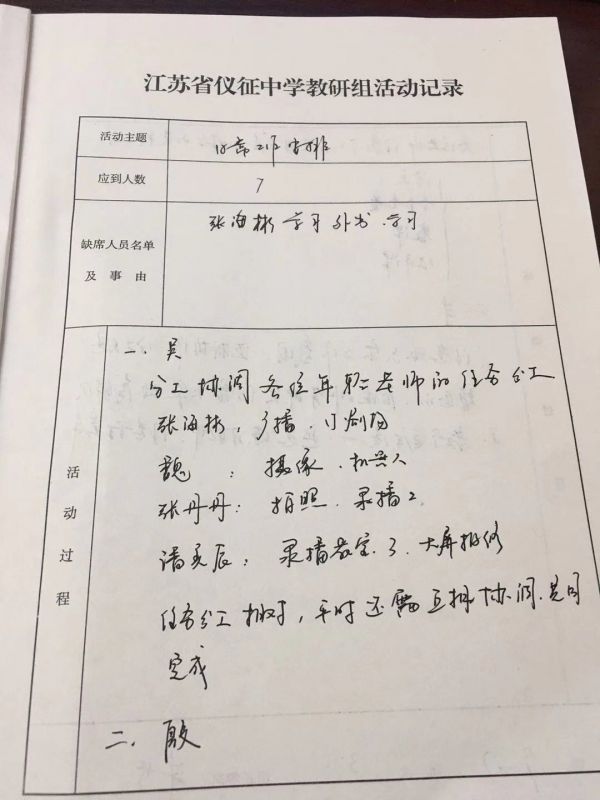 江苏省仪征中学教研组活动记录
活动主题
工作安排
应到人数 7
缺席人员名单
及事由
张海彬 学习 外出.学习
活动过程
一. 吴
分工协调 各位年轻老师的任务分工
张海彬: 广播.
魏 : 摄像. 机器人
张丹丹: 拍照. 录播2
潘 辰: 录播教室.3. 大屏报修
任务分工 相对, 平时还需互相协调.共同
完成
二. 殷